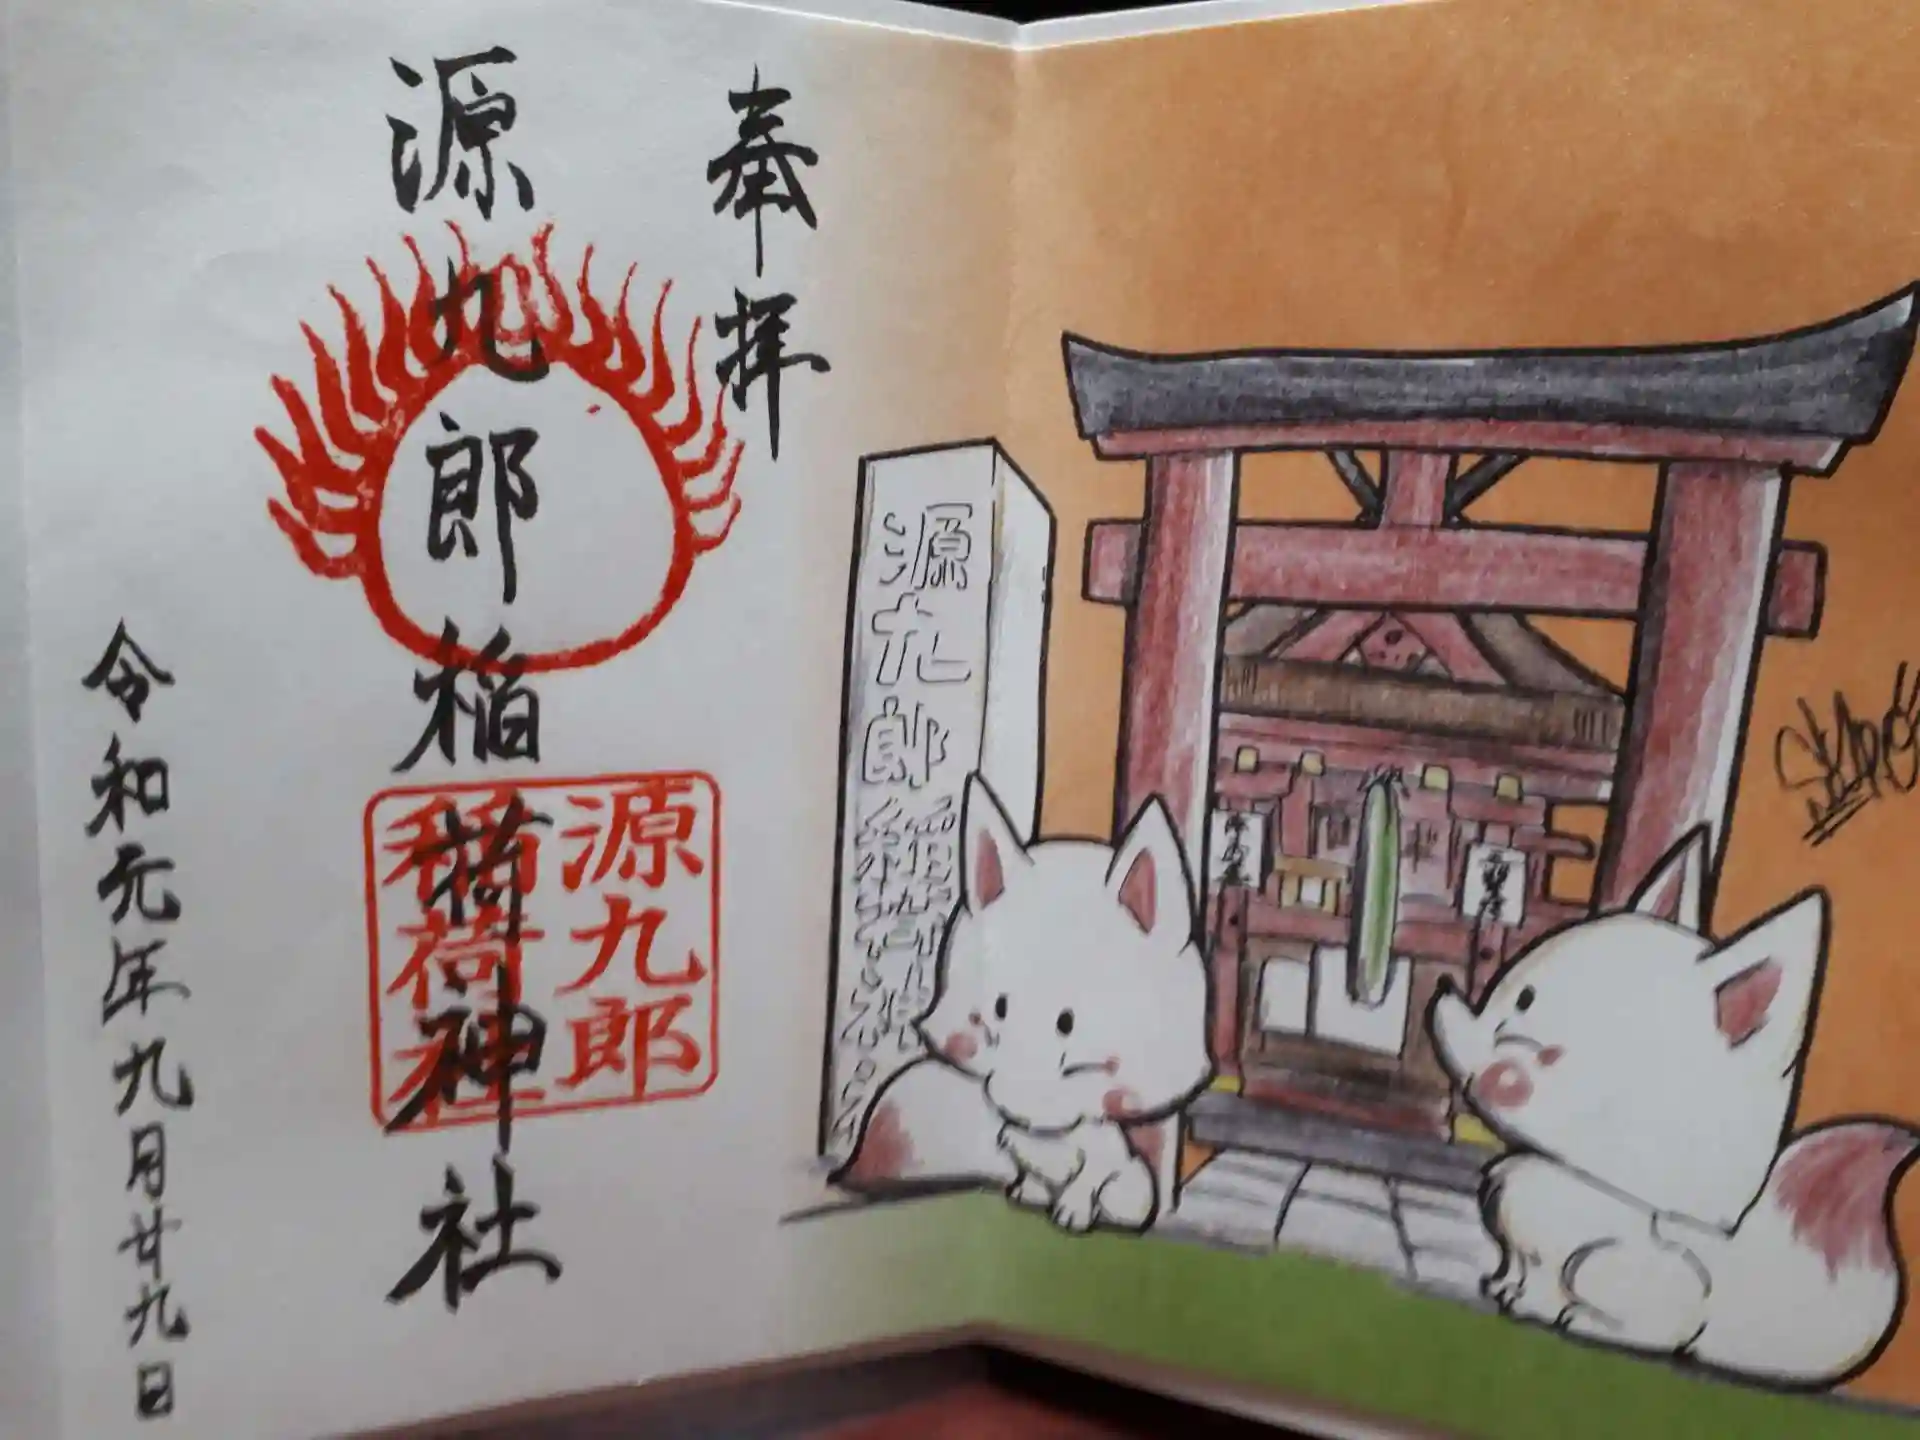 奉拝
源九郎稲荷神社
源九郎
稲荷神社
令和元年九月廿九日
源九郎稲荷神社